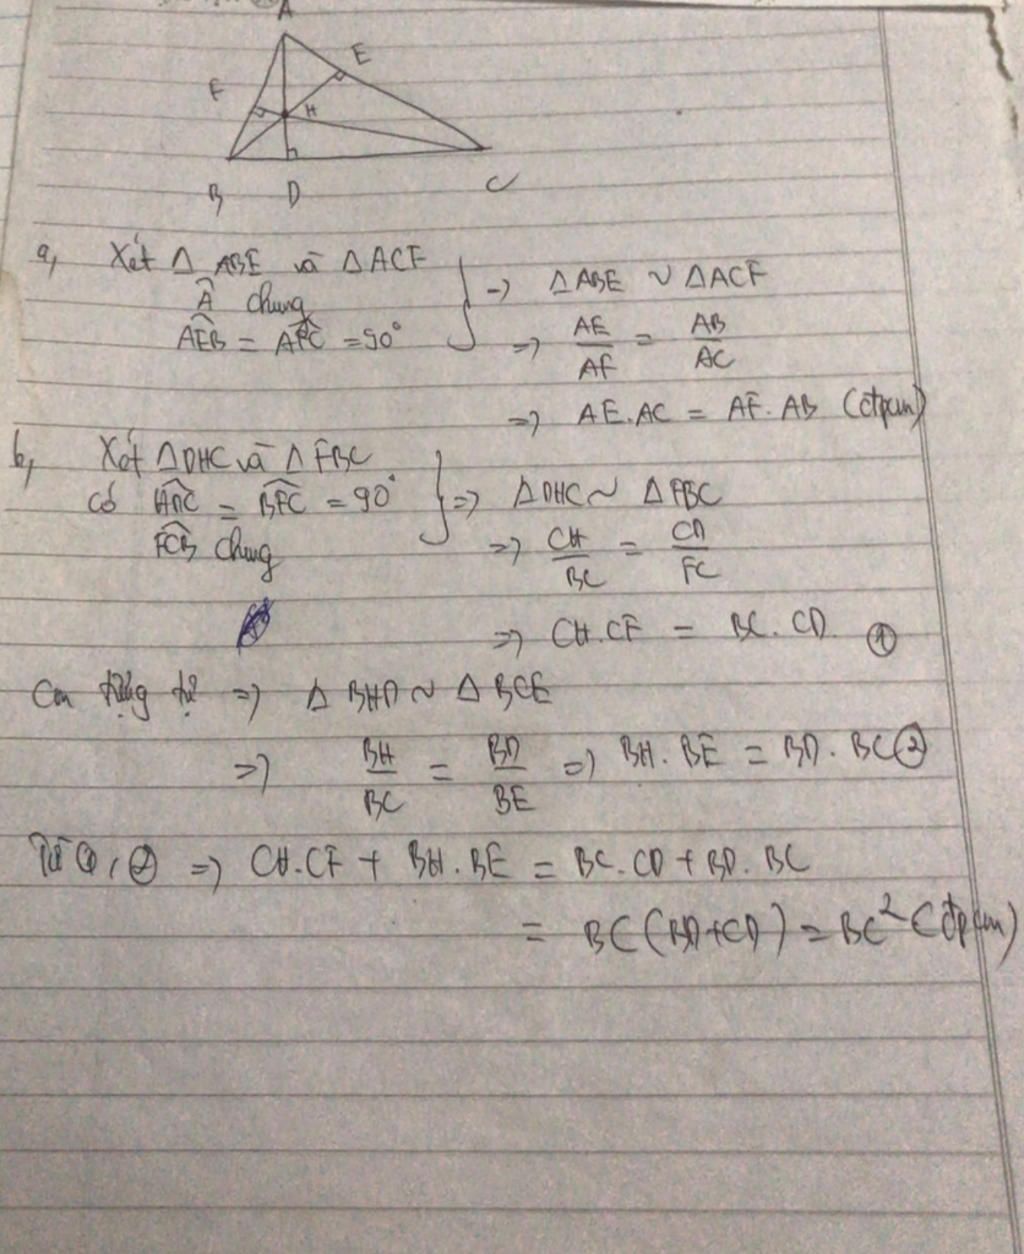 A
E
F
H
B D C
a, Xét Δ ABE và ΔACF
Â chung
\widehat{AEB} = \widehat{AFC} = 90°
=> ΔABE ~ ΔACF
=> AE/AF = AB/AC
=> AE.AC = AF.AB (đpcm)
b, Xét ΔDHC và ΔFBC
có \widehat{HDC} = \widehat{BFC} = 90°
\widehat{FCB} chung
=> ΔDHC ~ ΔFBC
=> CH/BC = CD/FC
=> CH.CF = BC.CD ①
Cm tương tự => Δ BHD ~ Δ BCE
=> BH/BC = BD/BE => BH.BE = BD.BC ②
Từ ①, ② => CH.CF + BH.BE = BC.CD + BD.BC
= BC(BD+CD) = BC² (đpcm)